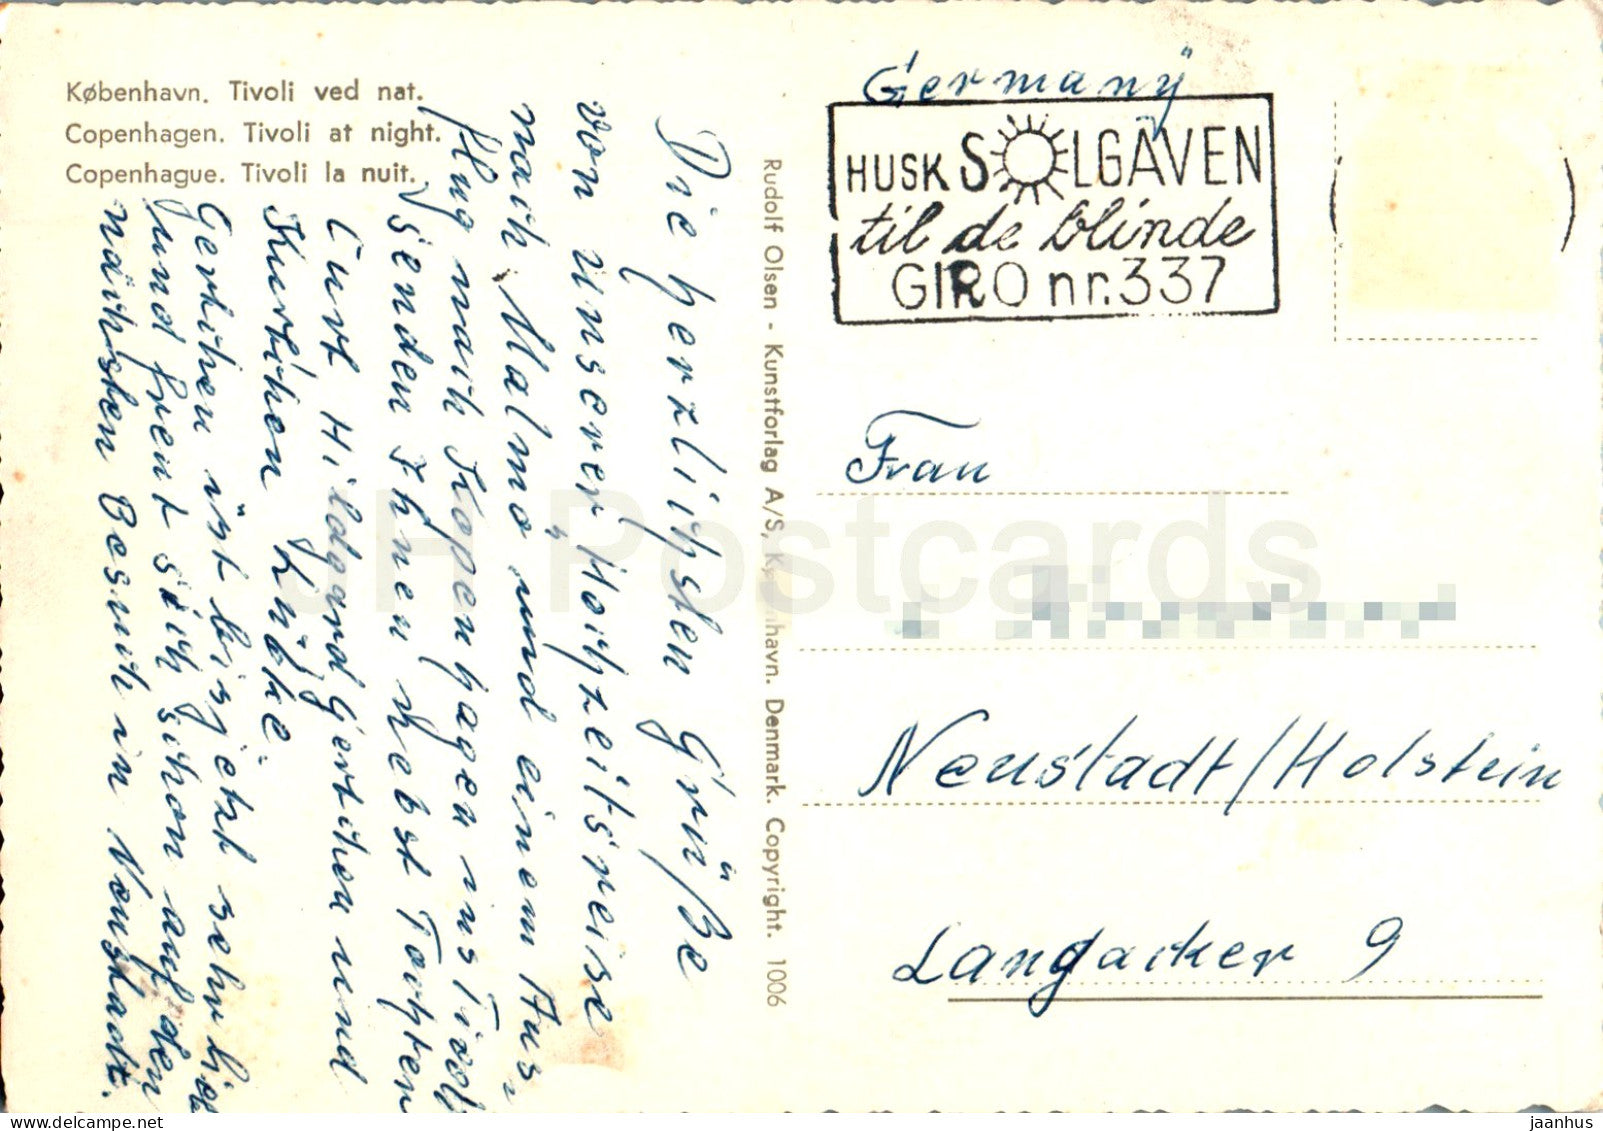 København. Tivoli ved nat.
Copenhagen. Tivoli at night.
Copenhague. Tivoli la nuit.
Die herzlichsten Grüße
von unserer Hochzeitsreise
nach Malmö und einem Aus„
flug nach Kopenhagen ins Tivoli
senden Ihnen nebst Tochter
Curt Hildgard Gertchen und
Kurtchen Lüdke.
Gertchen ist bis jetzt sehr lieb
und freut sich schon auf den
nächsten Besuch in Neustadt.
Rudolf Olsen - Kunstforlag A/S, København. Denmark. Copyright. 1006
Germany
HUSK SOLGAVEN
til de blinde
GIRO nr. 337
Frau
Neustadt/Holstein
Langacker 9
JH Postcards
delcampe.net
jaanhus